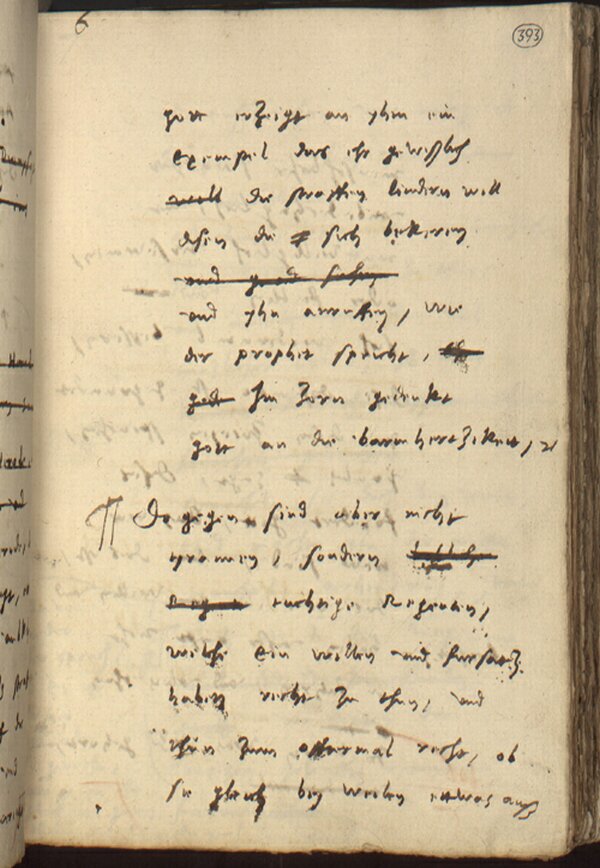 6
393
gott erzeigt an yhm ein
Exempel das ehr gewißlich
woll die straffen lindern will
denen die sich bekeren
und
und yhn anruffen, wie
der prophet spricht,
gott Im Zorn gedenkt
gott an die barmhertzikeit, 
Dagegen sind aber nicht
tyrannen, sondern
tuchtige Regenten,
welche ein willen und fursatz
haben recht zu thun, und
thun zum offtermal recht, ob
sie gleich bey weilen ettwas auß